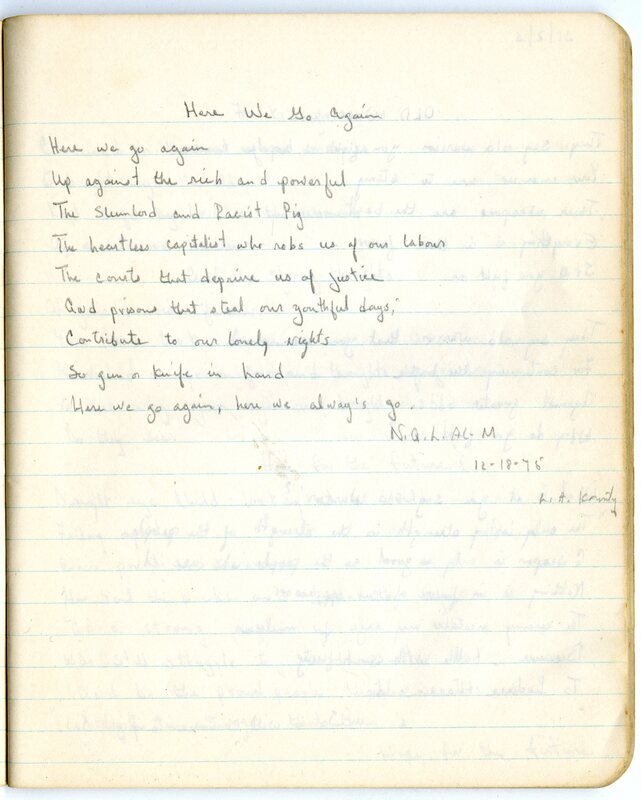 Here We Go Again
Here we go again
Up against the rich and powerful
The Slumlord and Racist Pig
The heartless capitalist who robs us of our labour
The courts that deprive us of justice
And prisons that steal our youthful days,
Contribute to our lonely nights
So gun or knife in hand
Here we go again, here we alway's go.
N.Q.L. AL-M
12-18-75
L.A. County